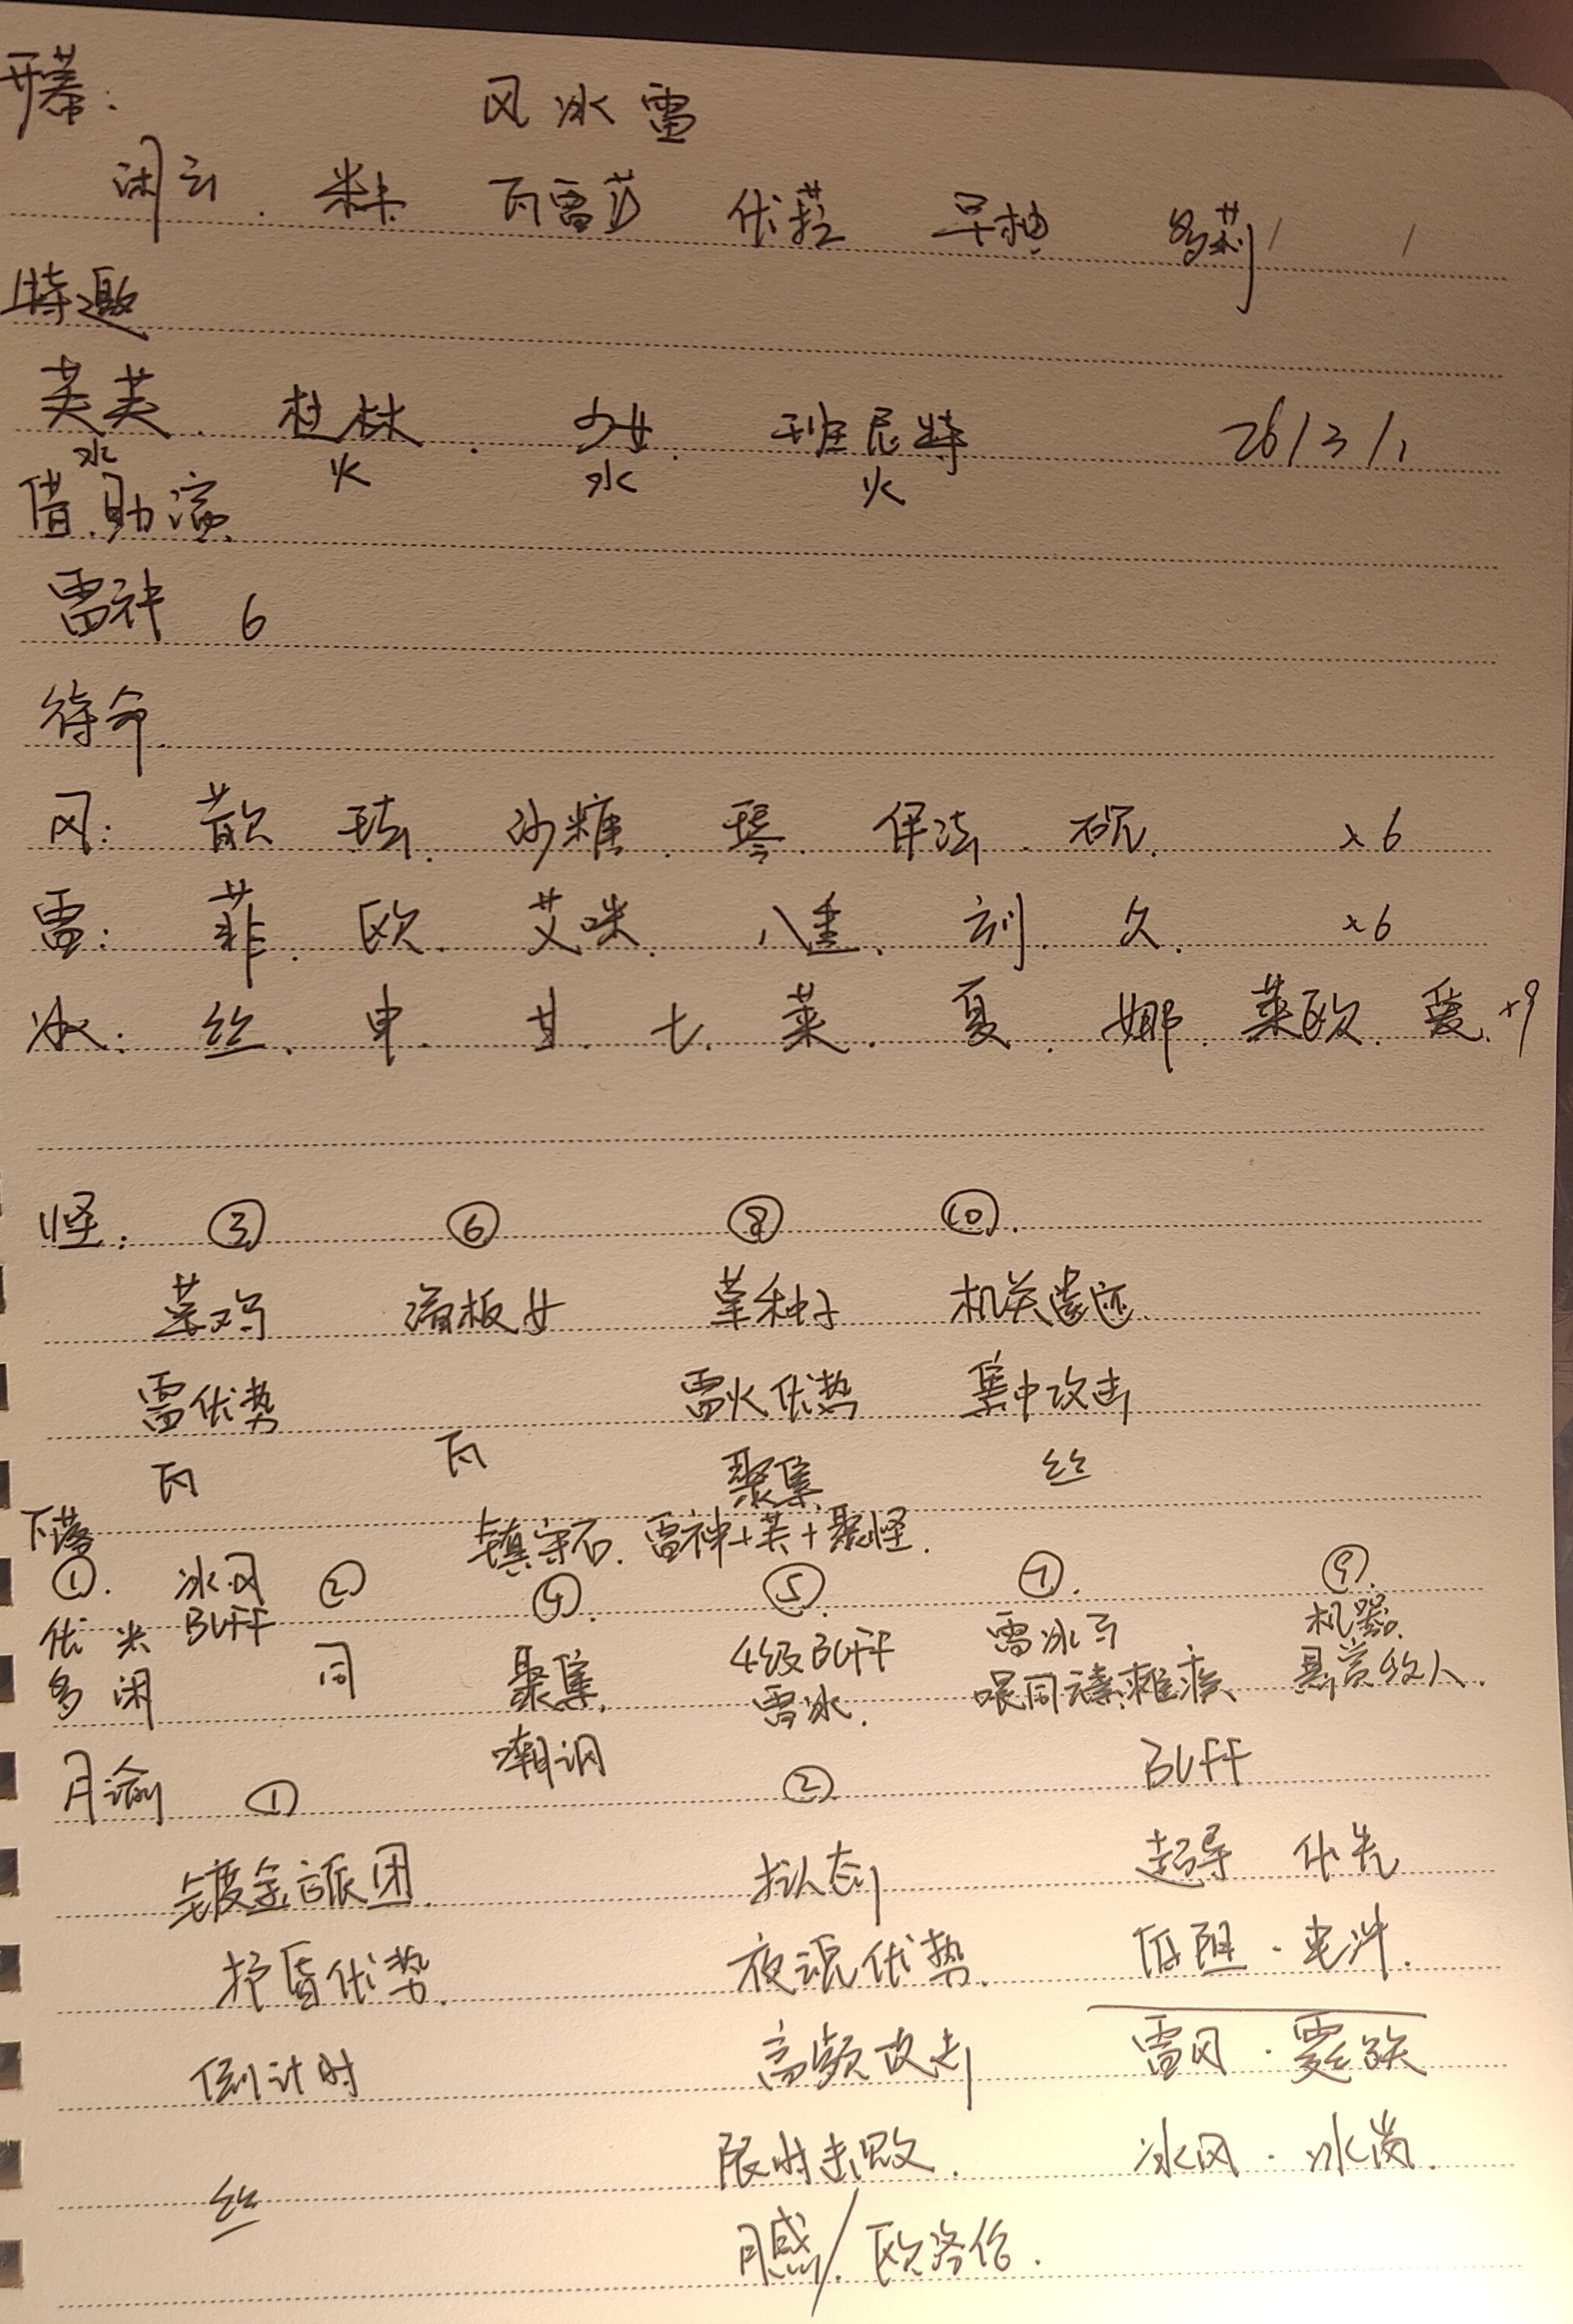 开幕: 风 冰 雷
闲云. 米卡 瓦雷莎 优菈 早柚 多莉 / /
特邀
芙芙. 杜林. 少女. 班尼特 26/3/1
水 火 水 火
借.助演
雷神 6
待命
风: 散 珐. 砂糖. 琴. 伊法. 砚. ×6
雷: 菲. 欧. 艾咪. 八重. 刻. 久. ×6
冰: 丝. 申. 甘. 七. 莱. 夏. 娜. 莱欧. 爱. ×9
怪: ③ ⑥ ⑧ ⑩.
菜鸡 滑板女 草种子 机关遗迹.
雷优势 雷火优势 集中攻击
瓦 瓦 聚集 丝
下落 镇守石. 雷神+芙+聚怪.
①. 冰.风 ② ④. ⑤. ⑦. ⑨.
优 米 BUFF 同 聚集. 4级BUFF 雷冰 机器.
多 闲 嘲讽 雷冰. 喂同元素 悬赏 人.
月谕 ① ② BUFF
镀金旅团. 拟态 超导 优先
护盾优势. 夜魂优势. 低阻·电冲.
倒计时 高频攻击 雷风·霆跃
丝 限时击败. 冰风·冰岚.
月感/. 欧洛伦.